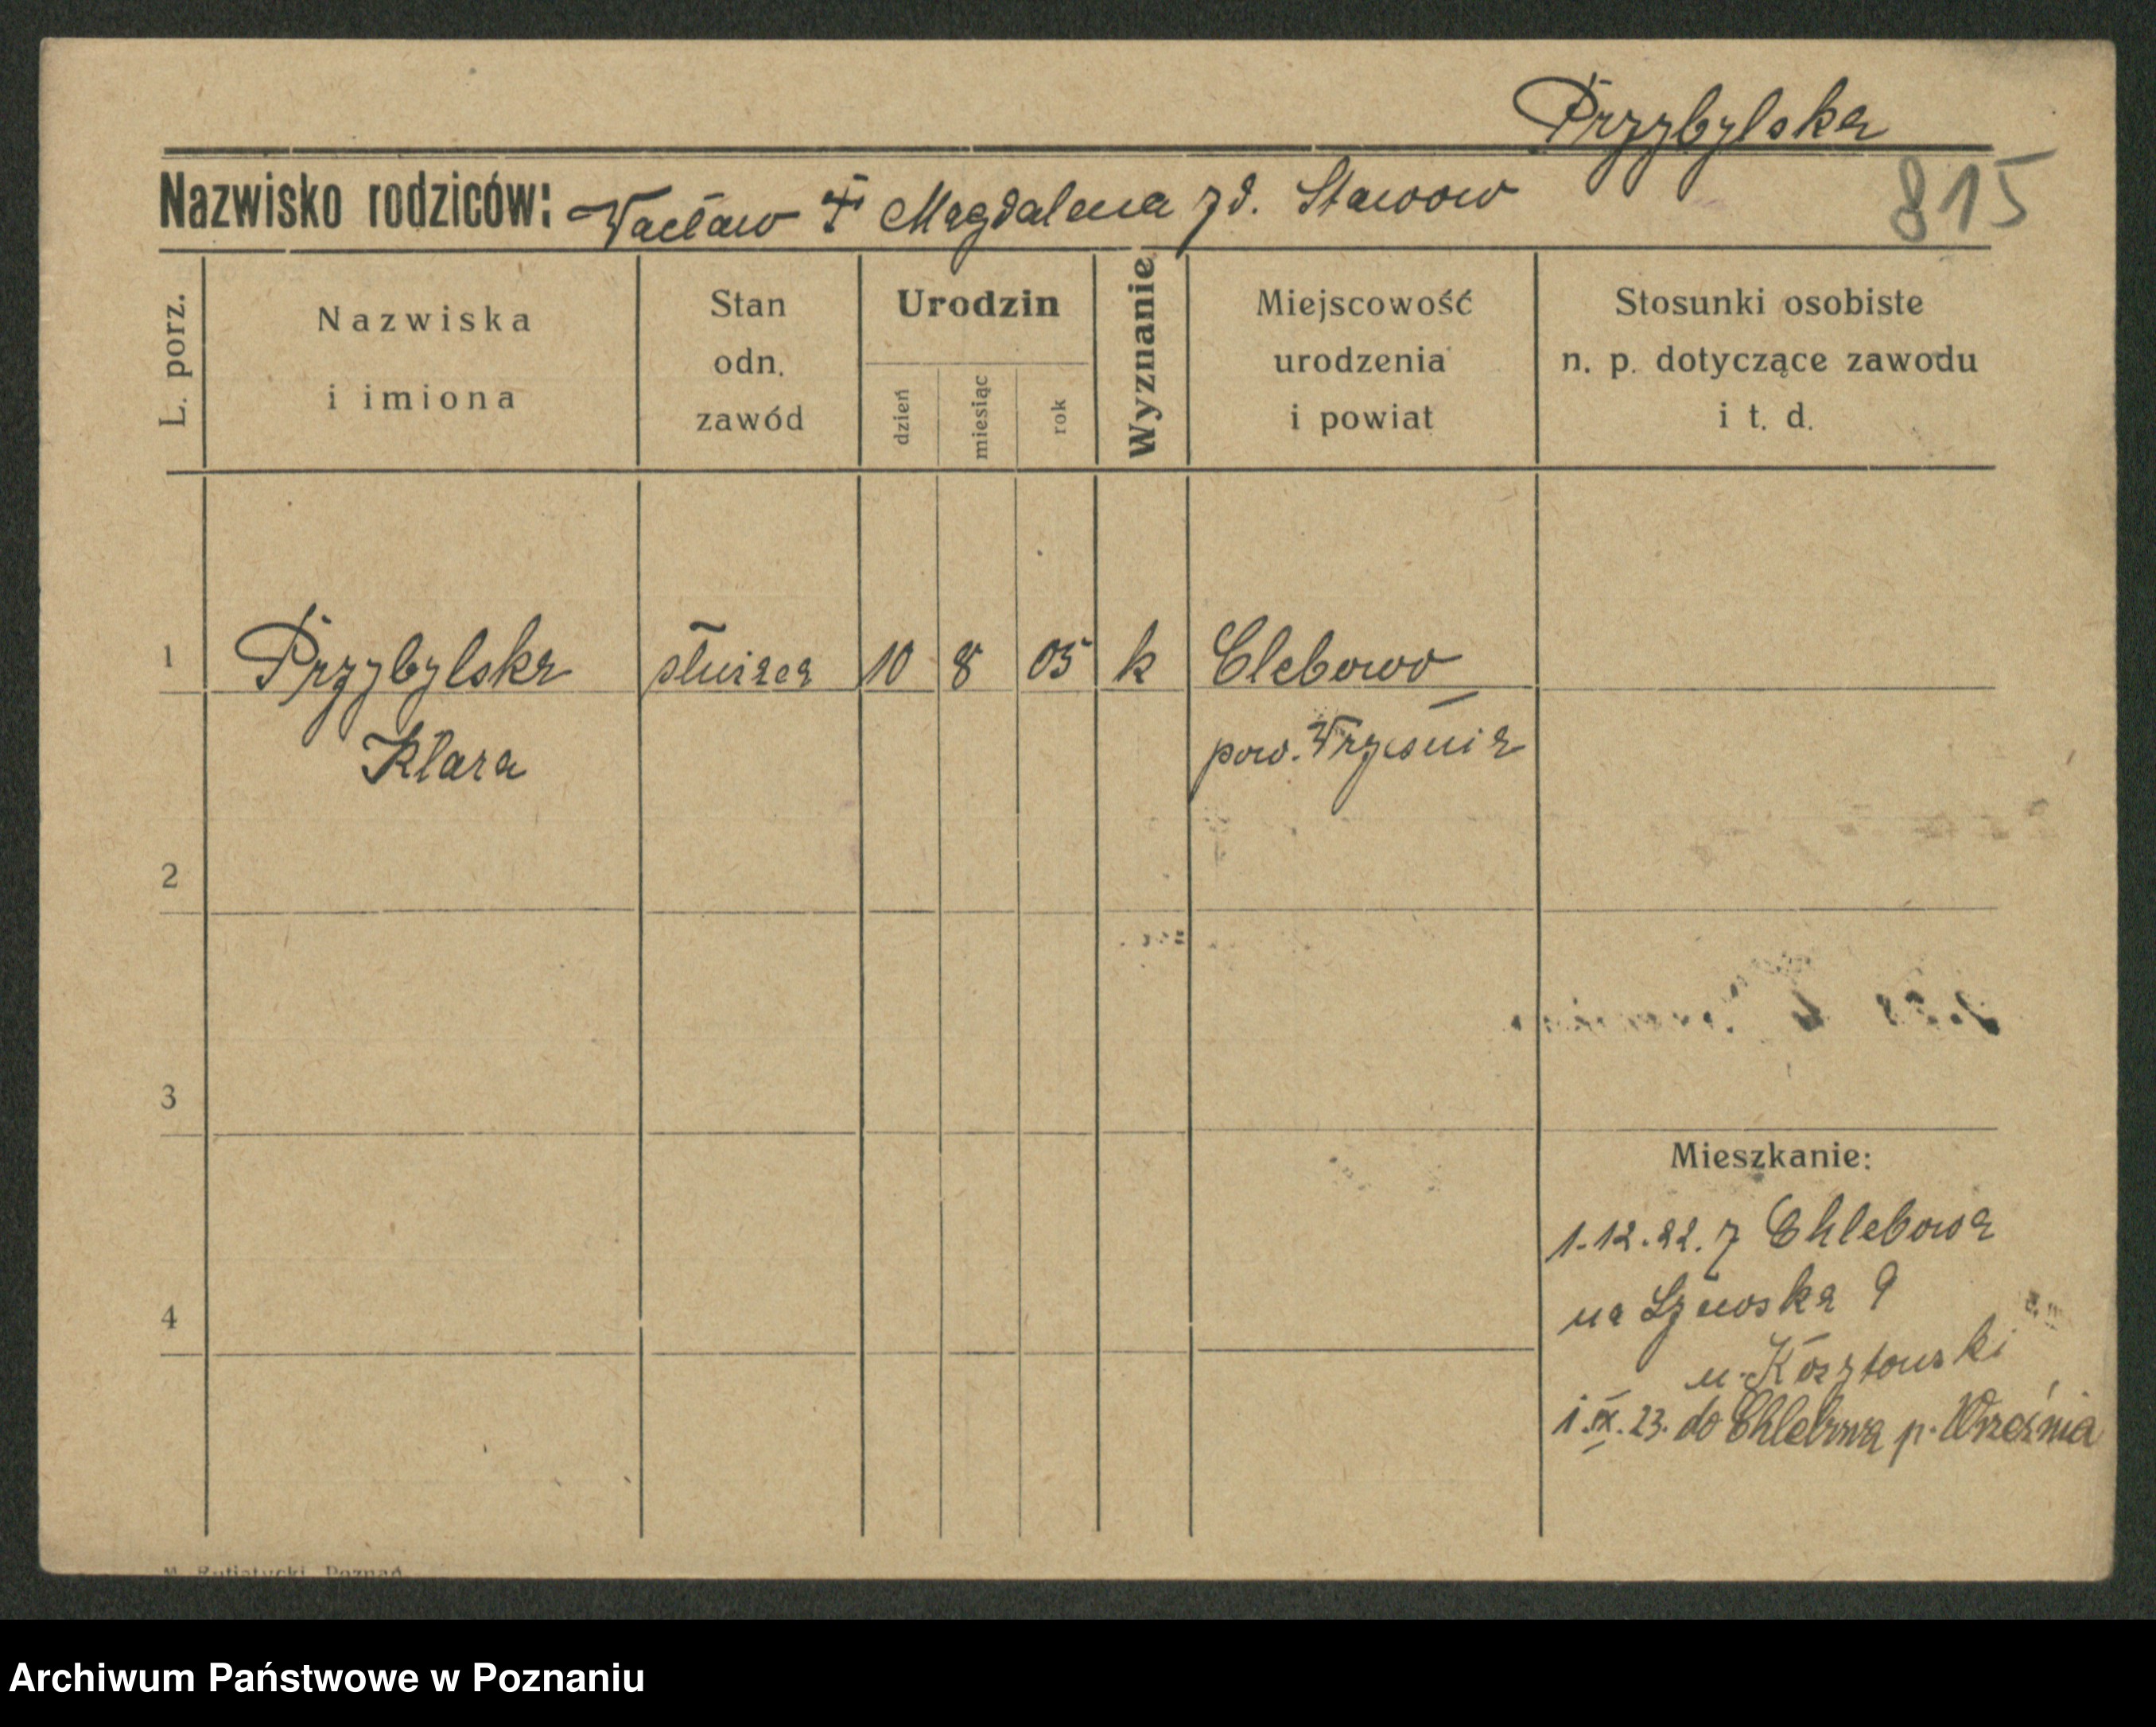 Przybylska
Nazwisko rodziców: Wacław † Magdalena zd. Stawow
815
L. porz.
Nazwiska
i imiona
Stan
odn.
zawód
Urodzin
dzień
miesiąc
rok
Wyznanie
Miejscowość
urodzenia
i powiat
Stosunki osobiste
n. p. dotyczące zawodu
i t. d.
1 Przybylska służąca 10 8 05 k Clebowo
Klara pow. Września
2
3
Mieszkanie:
1.12.22. z Chlebowa
na Szewska 9
4
u.
1.IX.23. do Chlebowa p. Września
Poznań
Archiwum Państwowe w Poznaniu